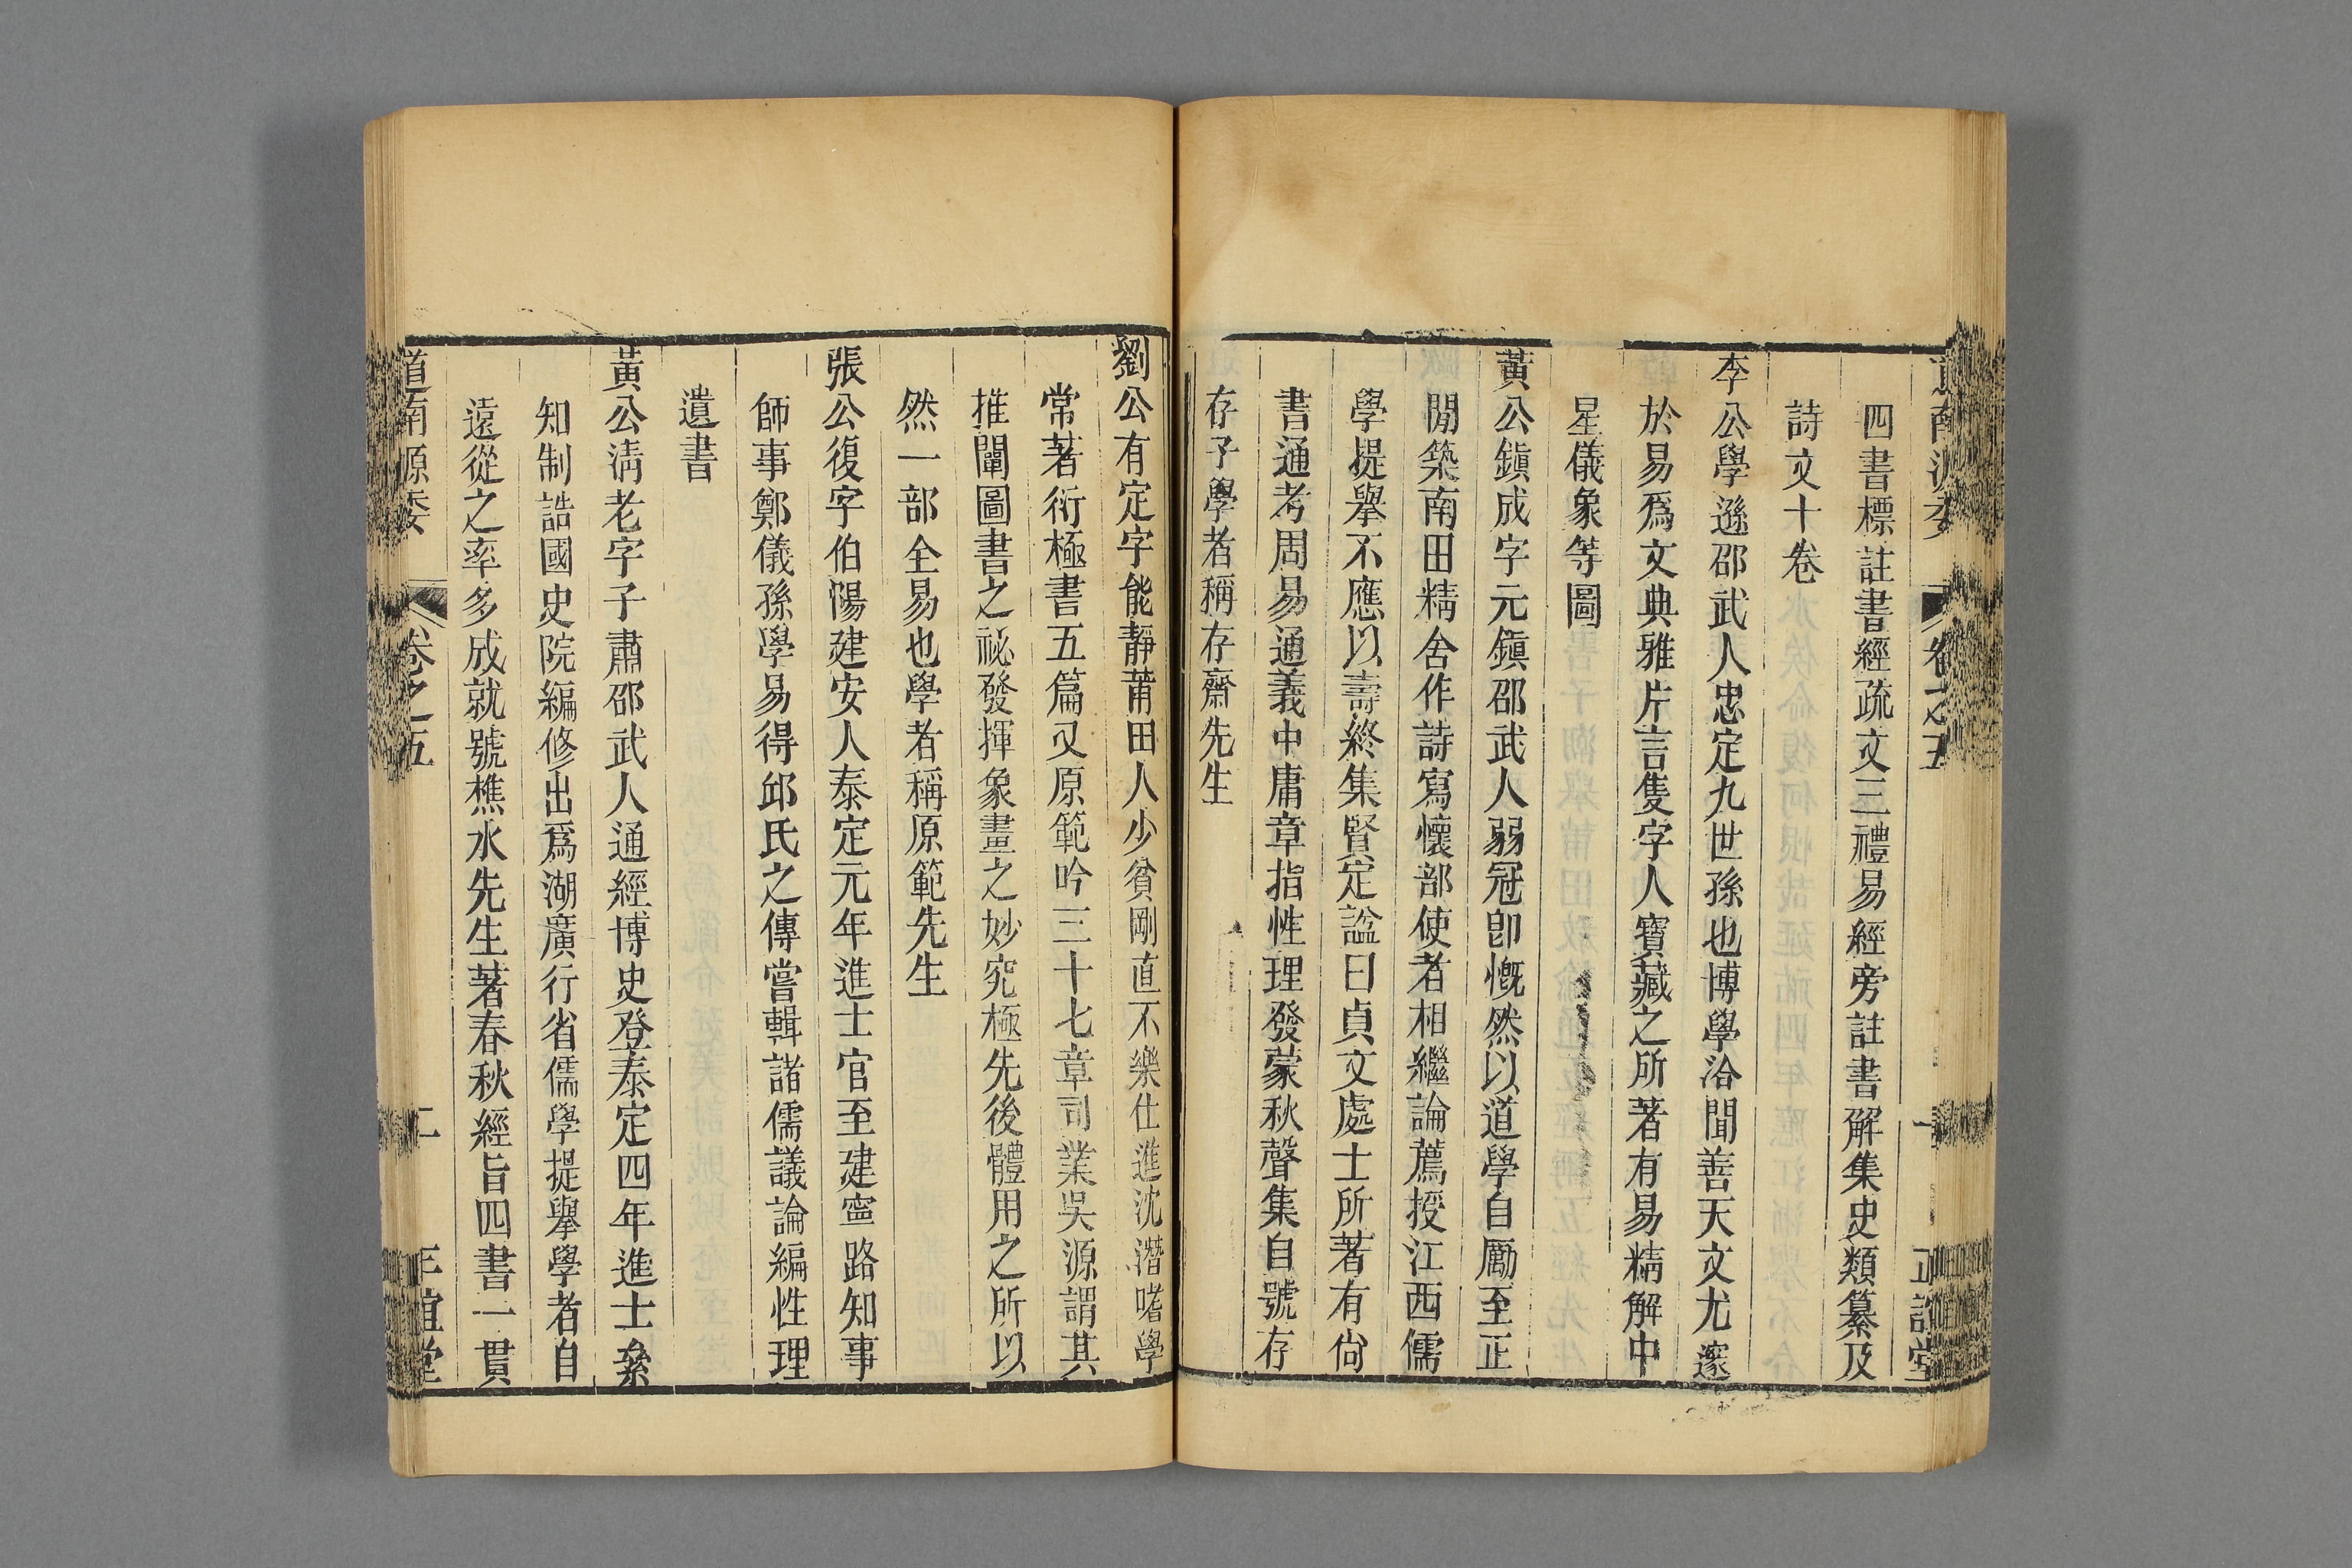 道南源委 卷之五 一 正誼堂
四書標註書經疏文三禮易經旁註書解集史類纂及
詩文十卷
李公學遜邵武人忠定九世孫也博學洽聞善天文尤邃
於易爲文典雅片言隻字人寶藏之所著有易精解中
星儀象等圖
黃公鎮成字元鎮邵武人弱冠卽慨然以道學自勵至正
閒築南田精舍作詩寫懷部使者相繼論薦授江西儒
學提舉不應以壽終集賢定諡曰貞文處士所著有尙
書通考周易通義中庸章指性理發蒙秋聲集自號存
存子學者稱存齋先生
劉公有定字能靜莆田人少貧剛直不樂仕進沈潛嗜學
常著衍極書五篇又原範吟三十七章司業吳源謂其
推闡圖書之祕發揮象畫之妙究極先後體用之所以
然一部全易也學者稱原範先生
張公復字伯陽建安人泰定元年進士官至建寧路知事
師事鄭儀孫學易得邱氏之傳嘗輯諸儒議論編性理
遺書
黃公淸老字子肅邵武人通經博史登泰定四年進士絫
知制誥國史院編修出爲湖廣行省儒學提舉學者自
遠從之率多成就號樵水先生著春秋經旨四書一貫
道南源委 卷之五 二 正誼堂